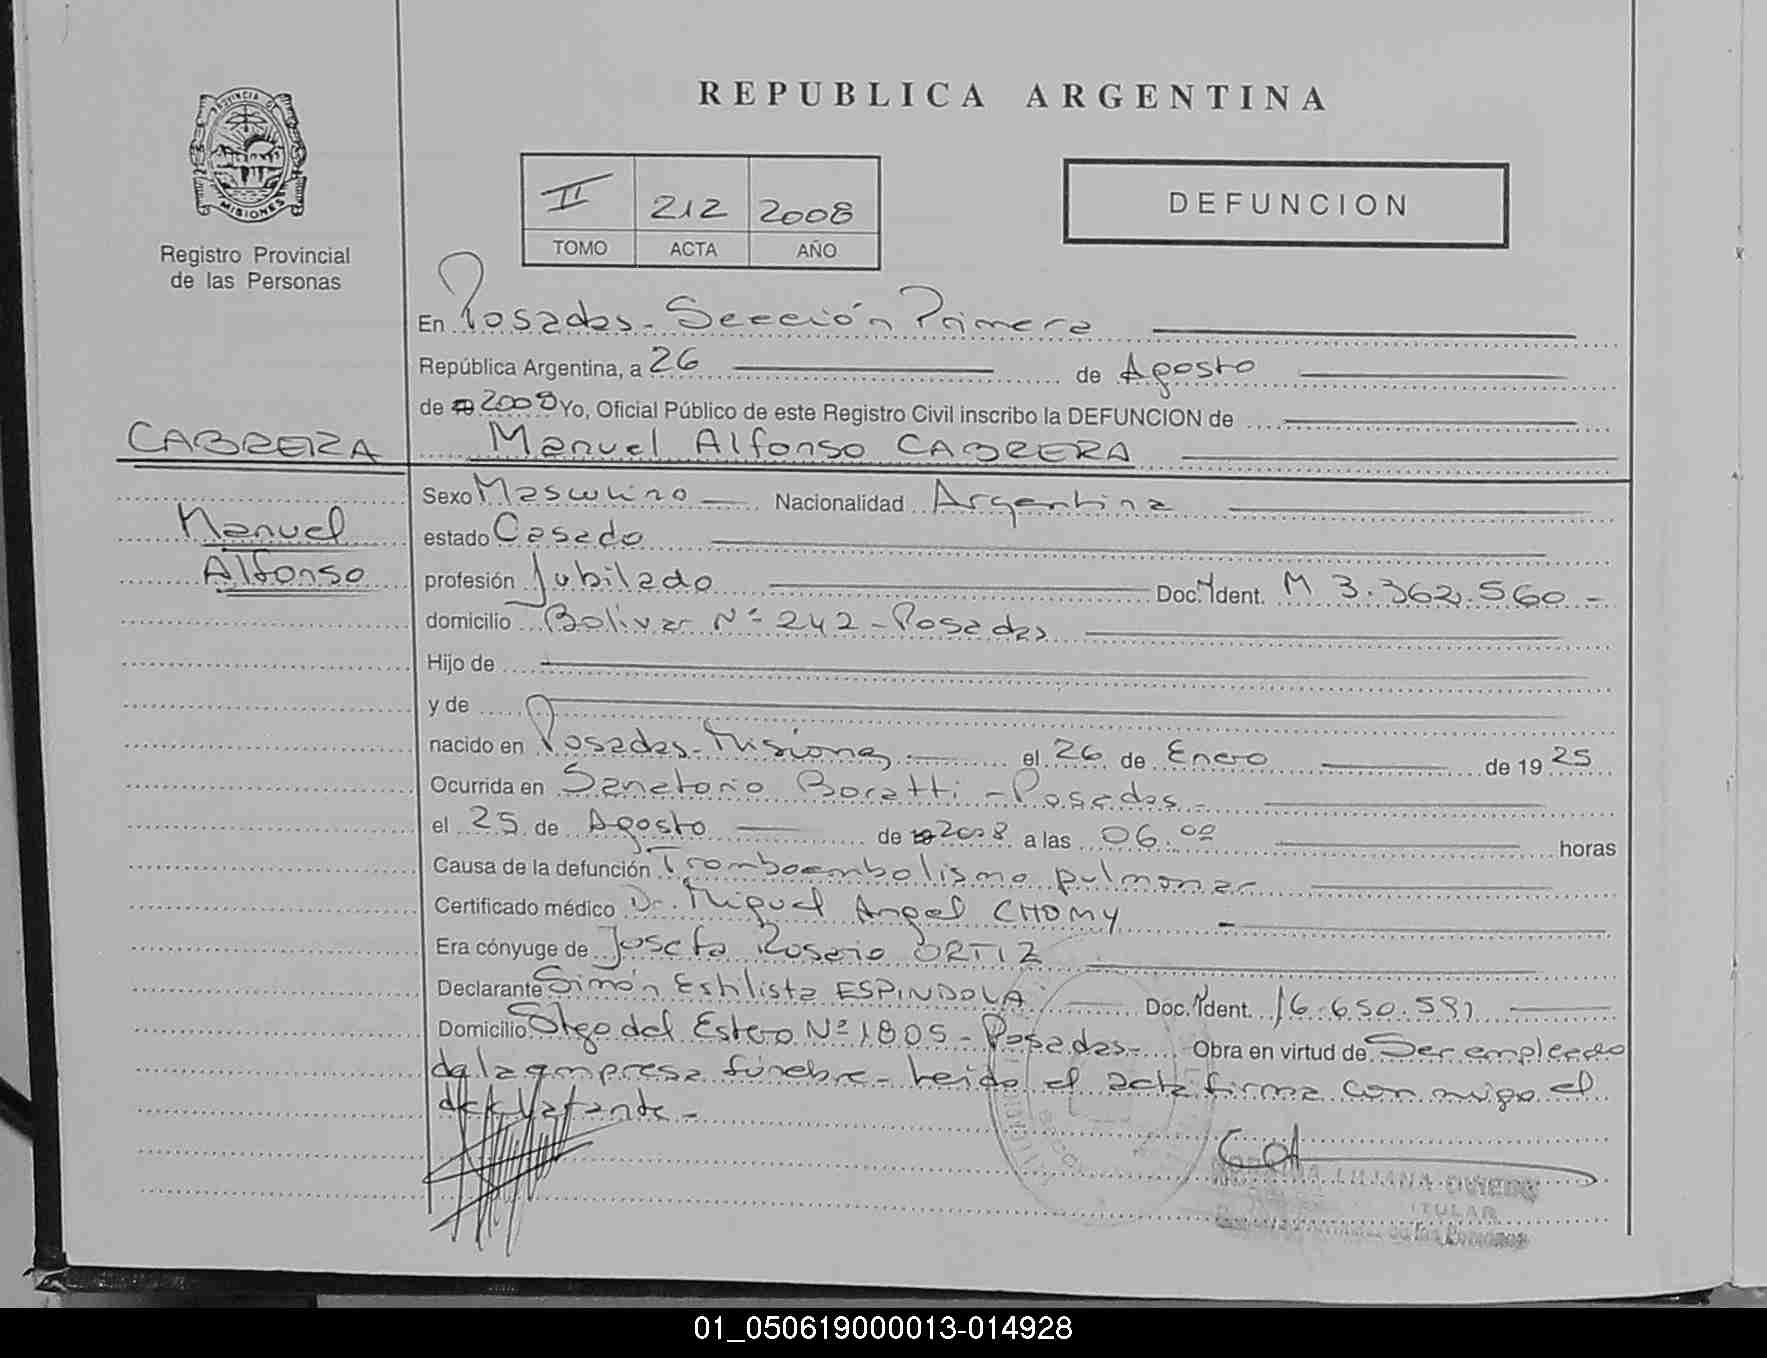 REPUBLICA ARGENTINA
PROVINCIA DE
MISIONES
Registro Provincial
de las Personas
II 212 2008
TOMO ACTA AÑO
DEFUNCION
En Posadas - Sección Primera
República Argentina, a 26 de Agosto
de 2008 Yo, Oficial Público de este Registro Civil inscribo la DEFUNCION de
CABRERA
Manuel Alfonso CABRERA
Manuel
Alfonso
Sexo Masculino Nacionalidad Argentina
estado Casado
profesión Jubilado Doc. Ident. M 3.362.560 -
domicilio Bolivar Nº 242 - Posadas
Hijo de
y de
nacido en Posadas - Misiones. el 26 de Enero de 1925
Ocurrida en Sanatorio Boratti - Posadas -
el 25 de Agosto de 2008 a las 06.00 horas
Causa de la defunción Tromboembolismo pulmonar
Certificado médico Dr. Miguel Angel CHOMY
Era cónyuge de Josefa Rosario ORTIZ
Declarante Simón Estilista ESPINDOLA Doc. Ident. 16.650.591
Domicilio Stgo del Estero Nº 1805 - Posadas - Obra en virtud de Ser empleado
de la empresa fúnebre - Leida el acta firma conmigo el
declarante -
LILIANA OVIEDO
TITULAR
de las Personas
01_050619000013-014928